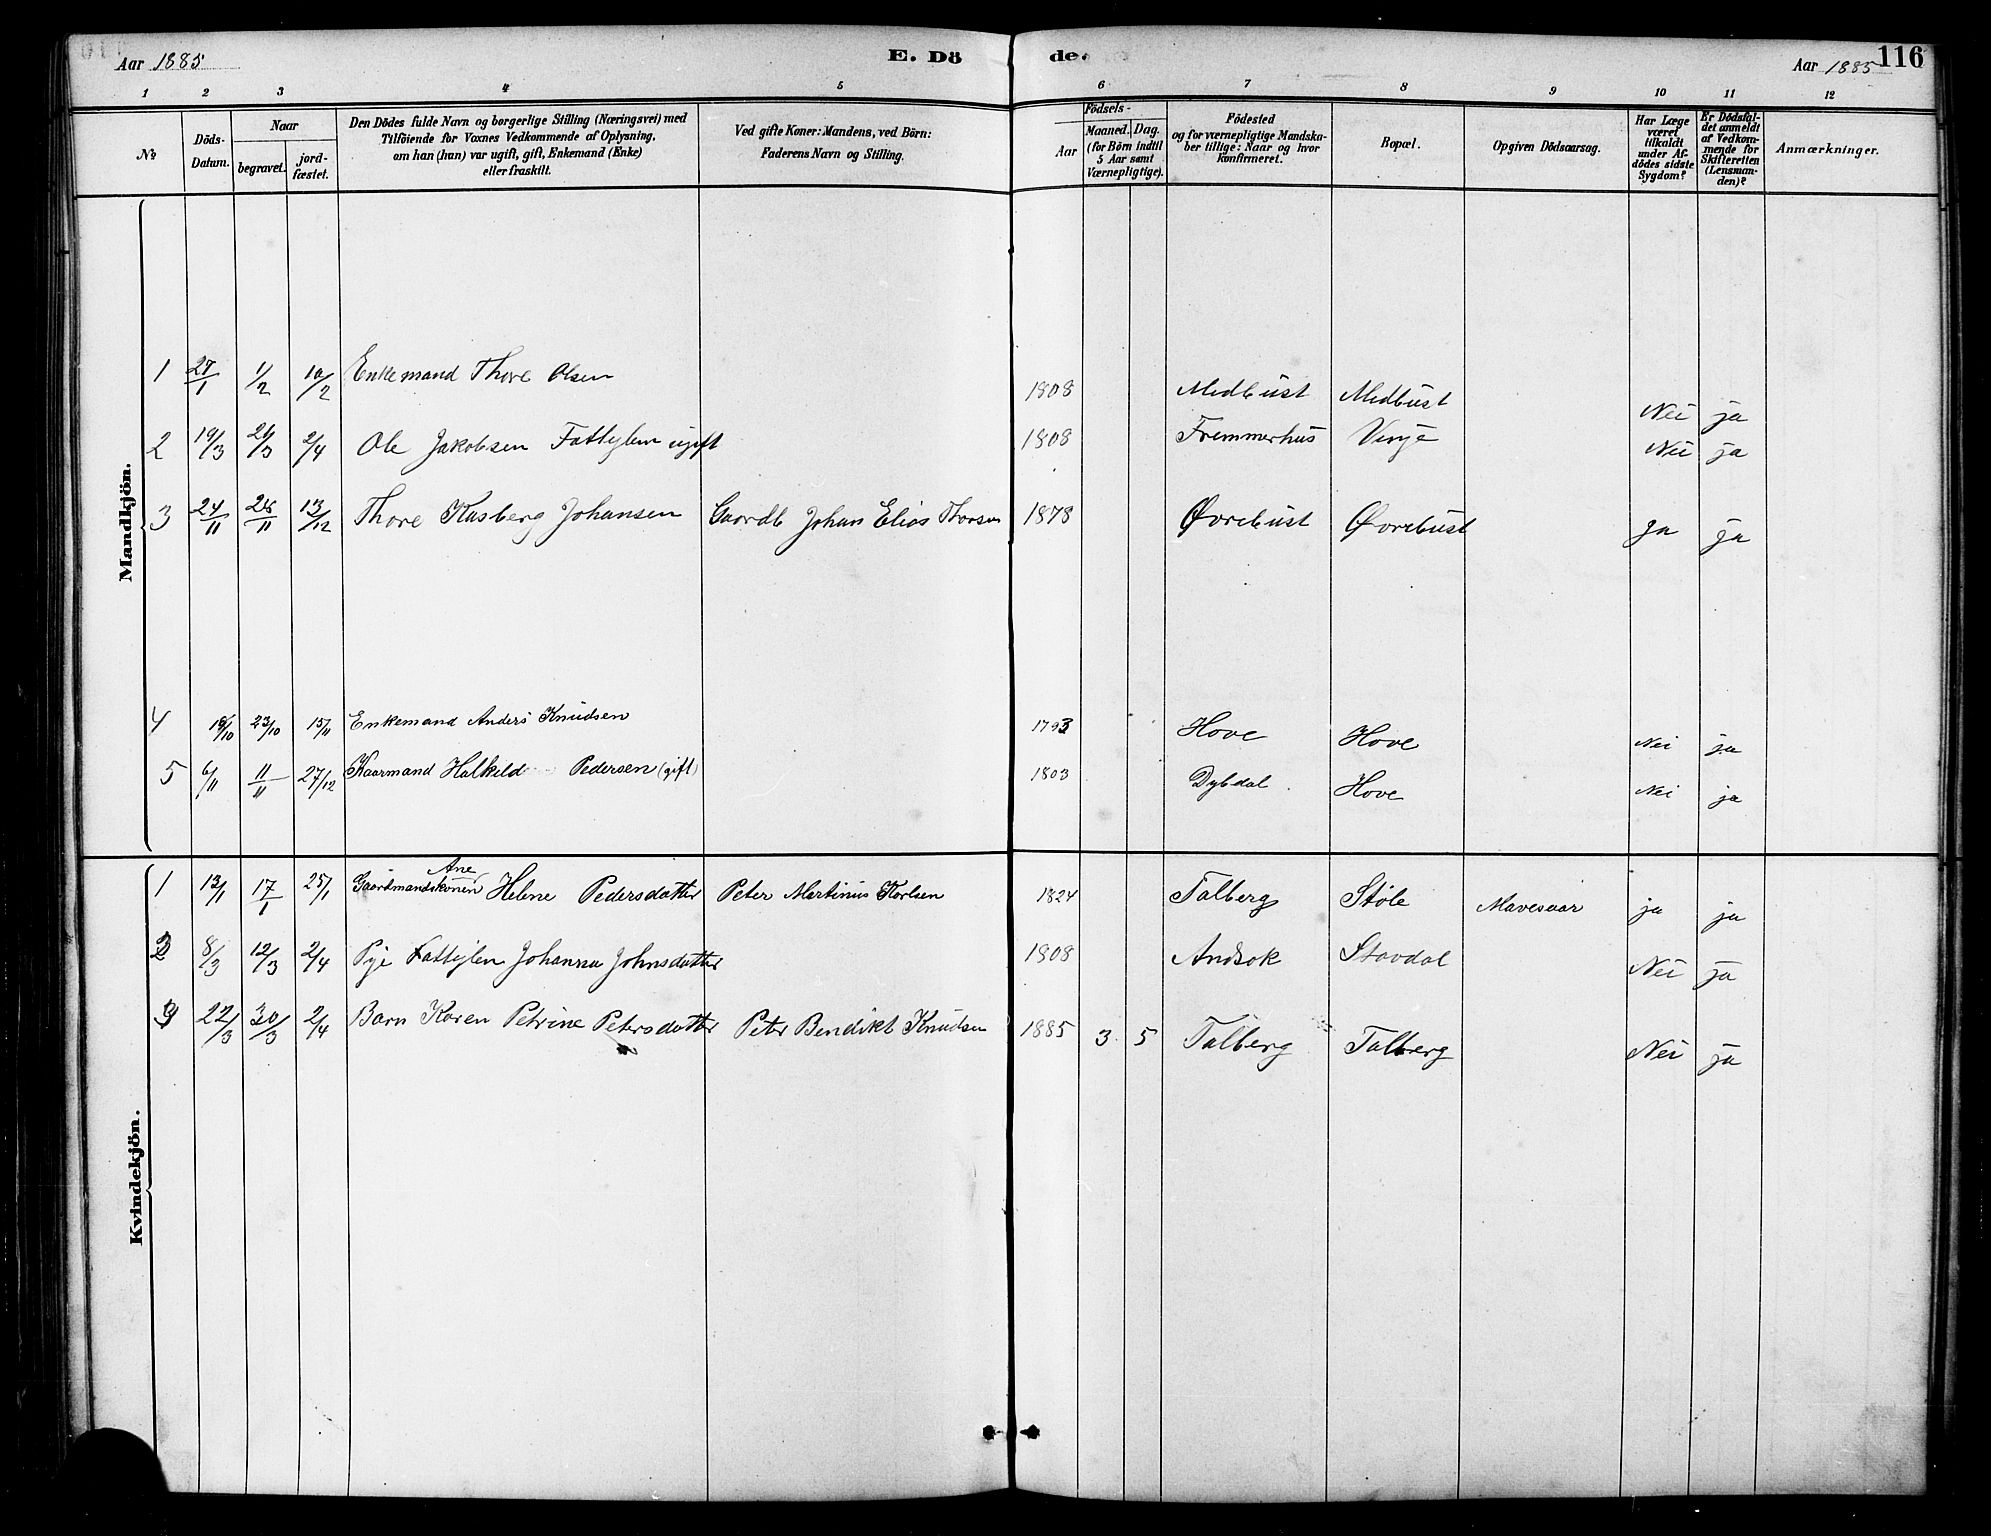 Aar 1885
E. Dö
de.
Aar 1885
116
1 2 3 4 5 6 7 8 9 10 11 12
No
Döds-Datum.
Naar
begravet. jord-fæstet.
Den Dödes fulde Navn og borgerlige Stilling (Næringsvei) med
Tilföiende for Voxnes Vedkommende af Oplysning,
om han (hun) var ugift, gift, Enkemand (Enke)
eller fraskilt.
Ved gifte Koner: Mandens, ved Börn:
Faderens Navn og Stilling.
Födsels-
Aar
Maaned. Dag.
(for Börn indtil
5 Aar samt
Værnepligtige).
Födested
og for værnepligtige Mandska-
ber tillige: Naar og hvor
konfirmeret.
Bopæl.
Opgiven Dödsaarsag.
Har Læge
været
tilkaldt
under Af-
dödes sidste
Sygdom?
Er Dödsfal-
det anmeldt
af Vedkom-
mende for
Skifteretten
(Lensman-
den)?
Anmærkninger.
Mandkjön.
1 27/1 1/2 10/2 Enkemand Thore Olsen 1808 Medbust Medbust Nei ja
2 19/3 26/3 2/4 Ole Jakobsen Fattiglem ugift 1808 Fremmerhus Vinje Nei ja
3 24/11 28/11 13/12 Thore Kasberg Johansen Gaardb Johan Elias Thorsen 1878 Øvrebust Øvrebust Ja ja
4 19/10 23/10 15/11 Enkemand Anders Knudsen 1793 Hove Hove Nei ja
5 6/11 11/11 27/12 Kaarmand Halkild Pedersen (gift) 1803 Dybdal Hove Nei ja
Kvindekjön.
1 13/1 17/1 25/1 Gaardmandskonen Ane Helene Pedersdatter Peter Martinius Karlsen 1824 Talberg Støle Mavesaar ja ja
2 8/3 12/3 2/4 Pige Fattiglem Johanna Johnsdatter 1808 Andsok Stavdal Nei ja
3 22/3 30/3 2/4 Barn Karen Petrine Petersdatter Peter Bendikt Knudsen 1885 3 5 Talberg Talberg Nei ja